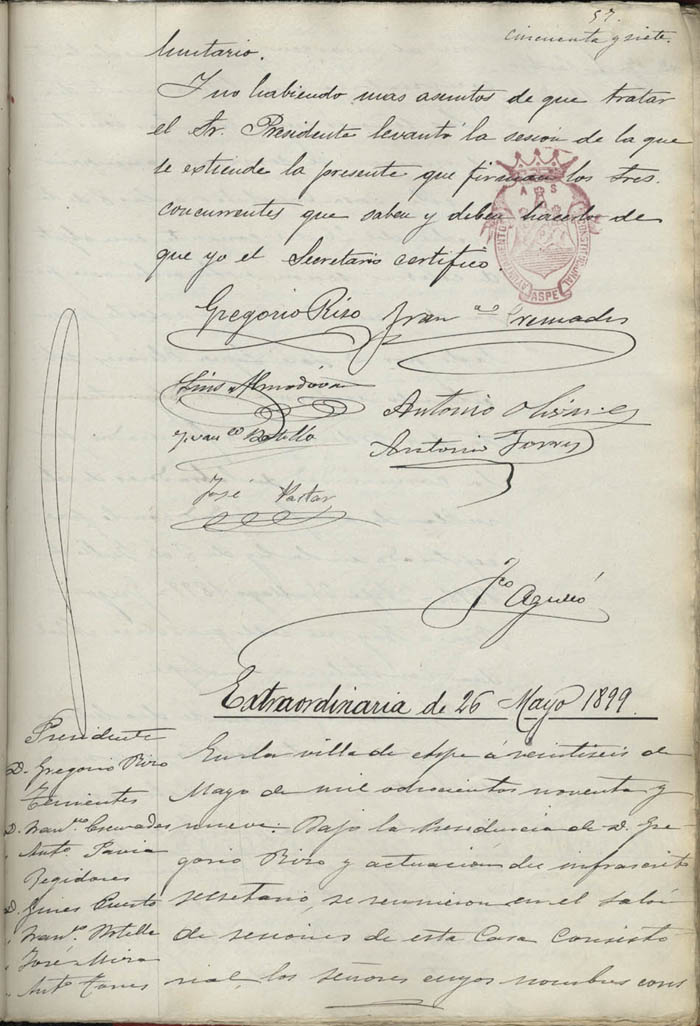 57.
cincuenta y siete.
Y no habiendo mas asuntos de que tratar
el Sr. Presidente levantó la sesion de la que
se extiende la presente que firman los Sres.
concurrentes que saben y deben hacerlo de
que yo el Secretario certifico.
A S
AYUNTAMIENTO CONSTITUCIONAL
ASPE
Gregorio Rizo Fran.co Cremades
Luis Almodóvar
Antonio
Fran.co Botella
Antonio Torres
José Pastor
Fco Agulló
Extraordinaria de 26 Mayo 1899.
Presidente
D. Gregorio Rizo
Tenientes
D. Fran.co Cremades
" Anto. Pavia
Regidores
D. Gines Cuesto
" Fran.co Botella
" José Mira
" Anto. Torres
En la villa de Aspe á veintiseis de
Mayo de mil ochocientos noventa y
nueve: Bajo la Presidencia de D. Gre
gorio Rizo y actuación del infrascrito
secretario, se reunieron en el salón
de sesiones de esta Casa Consisto
rial, los señores cuyos nombres cons